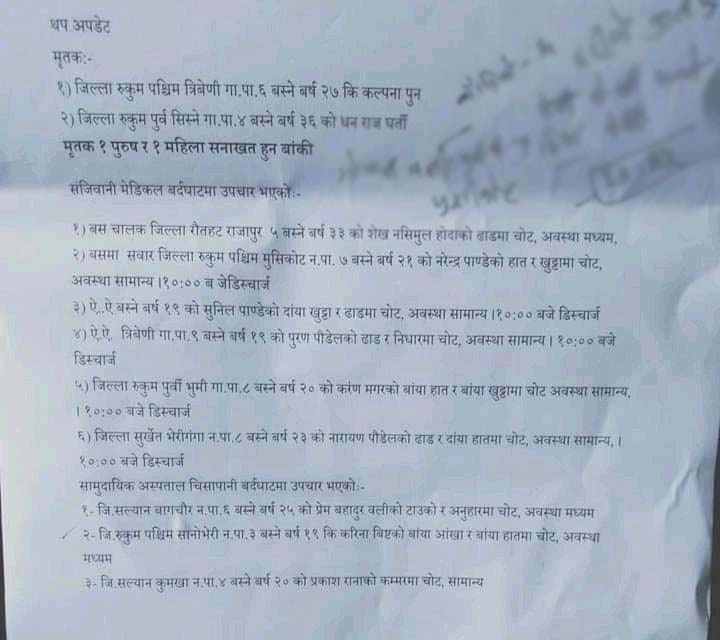 थप अपडेट
मृतक:-
१) जिल्ला रुकुम पश्चिम त्रिबेणी गा.पा.६ बस्ने बर्ष २७ कि कल्पना पुन
२) जिल्ला रुकुम पुर्व सिस्ने गा.पा.४ बस्ने बर्ष ३६ को धन राज घर्ती
मृतक १ पुरुष र १ महिला सनाखत हुन बांकी
संजिवानी मेडिकल बर्दघाटमा उपचार भएकोः-
१) बस चालक जिल्ला रौतहट राजापुर ५ बस्ने बर्ष ३३ को शेख नसिमुल होदाको ढाडमा चोट, अवस्था मध्यम,
२) बसमा सवार जिल्ला रुकुम पश्चिम मुसिकोट न.पा. ७ बस्ने बर्ष २१ को नरेन्द्र पाण्डेको हात र खुट्टामा चोट,
अवस्था सामान्य ।१०:०० ब जेडिस्चार्ज
३) ऐ..ऐ बस्ने बर्ष १९ को सुनिल पाण्डेको दांया खुट्टा र ढाडमा चोट, अवस्था सामान्य ।१०:०० बजे डिस्चार्ज
४) ऐ.ऐ. त्रिबेणी गा.पा.९ बस्ने बर्ष १९ को पुरण पौडेलको ढाड र निधारमा चोट, अवस्था सामान्य । १०:०० बजे
डिस्चार्ज
५) जिल्ला रुकुम पुर्वी भुमी गा.पा.८ बस्ने बर्ष २० को करंण मगरको बांया हात र बांया खुट्टामा चोट अवस्था सामान्य,
। १०:०० बजे डिस्चार्ज
६) जिल्ला सुर्खेत भेरीगंगा न.पा.८ बस्ने बर्ष २३ को नारायण पौडेलको ढाड र दांया हातमा चोट, अवस्था सामान्य, ।
१०:०० बजे डिस्चार्ज
सामुदायिक अस्पताल चिसापानी बर्दघाटमा उपचार भएको:-
१- जि.सल्यान बागचौर न.पा.६ बस्ने बर्ष २५ को प्रेम बहादुर वलीको टाउको र अनुहारमा चोट, अवस्था मध्यम
२- जि.रुकुम पश्चिम सानोभेरी न.पा.३ बस्ने बर्ष १९ कि करिना बिष्टको बांया आंखा र बांया हातमा चोट, अवस्था
मध्यम
३- जि.सल्यान कुमखा न.पा.४ बस्ने बर्ष २० को प्रकाश रानाको कम्मरमा चोट, सामान्य